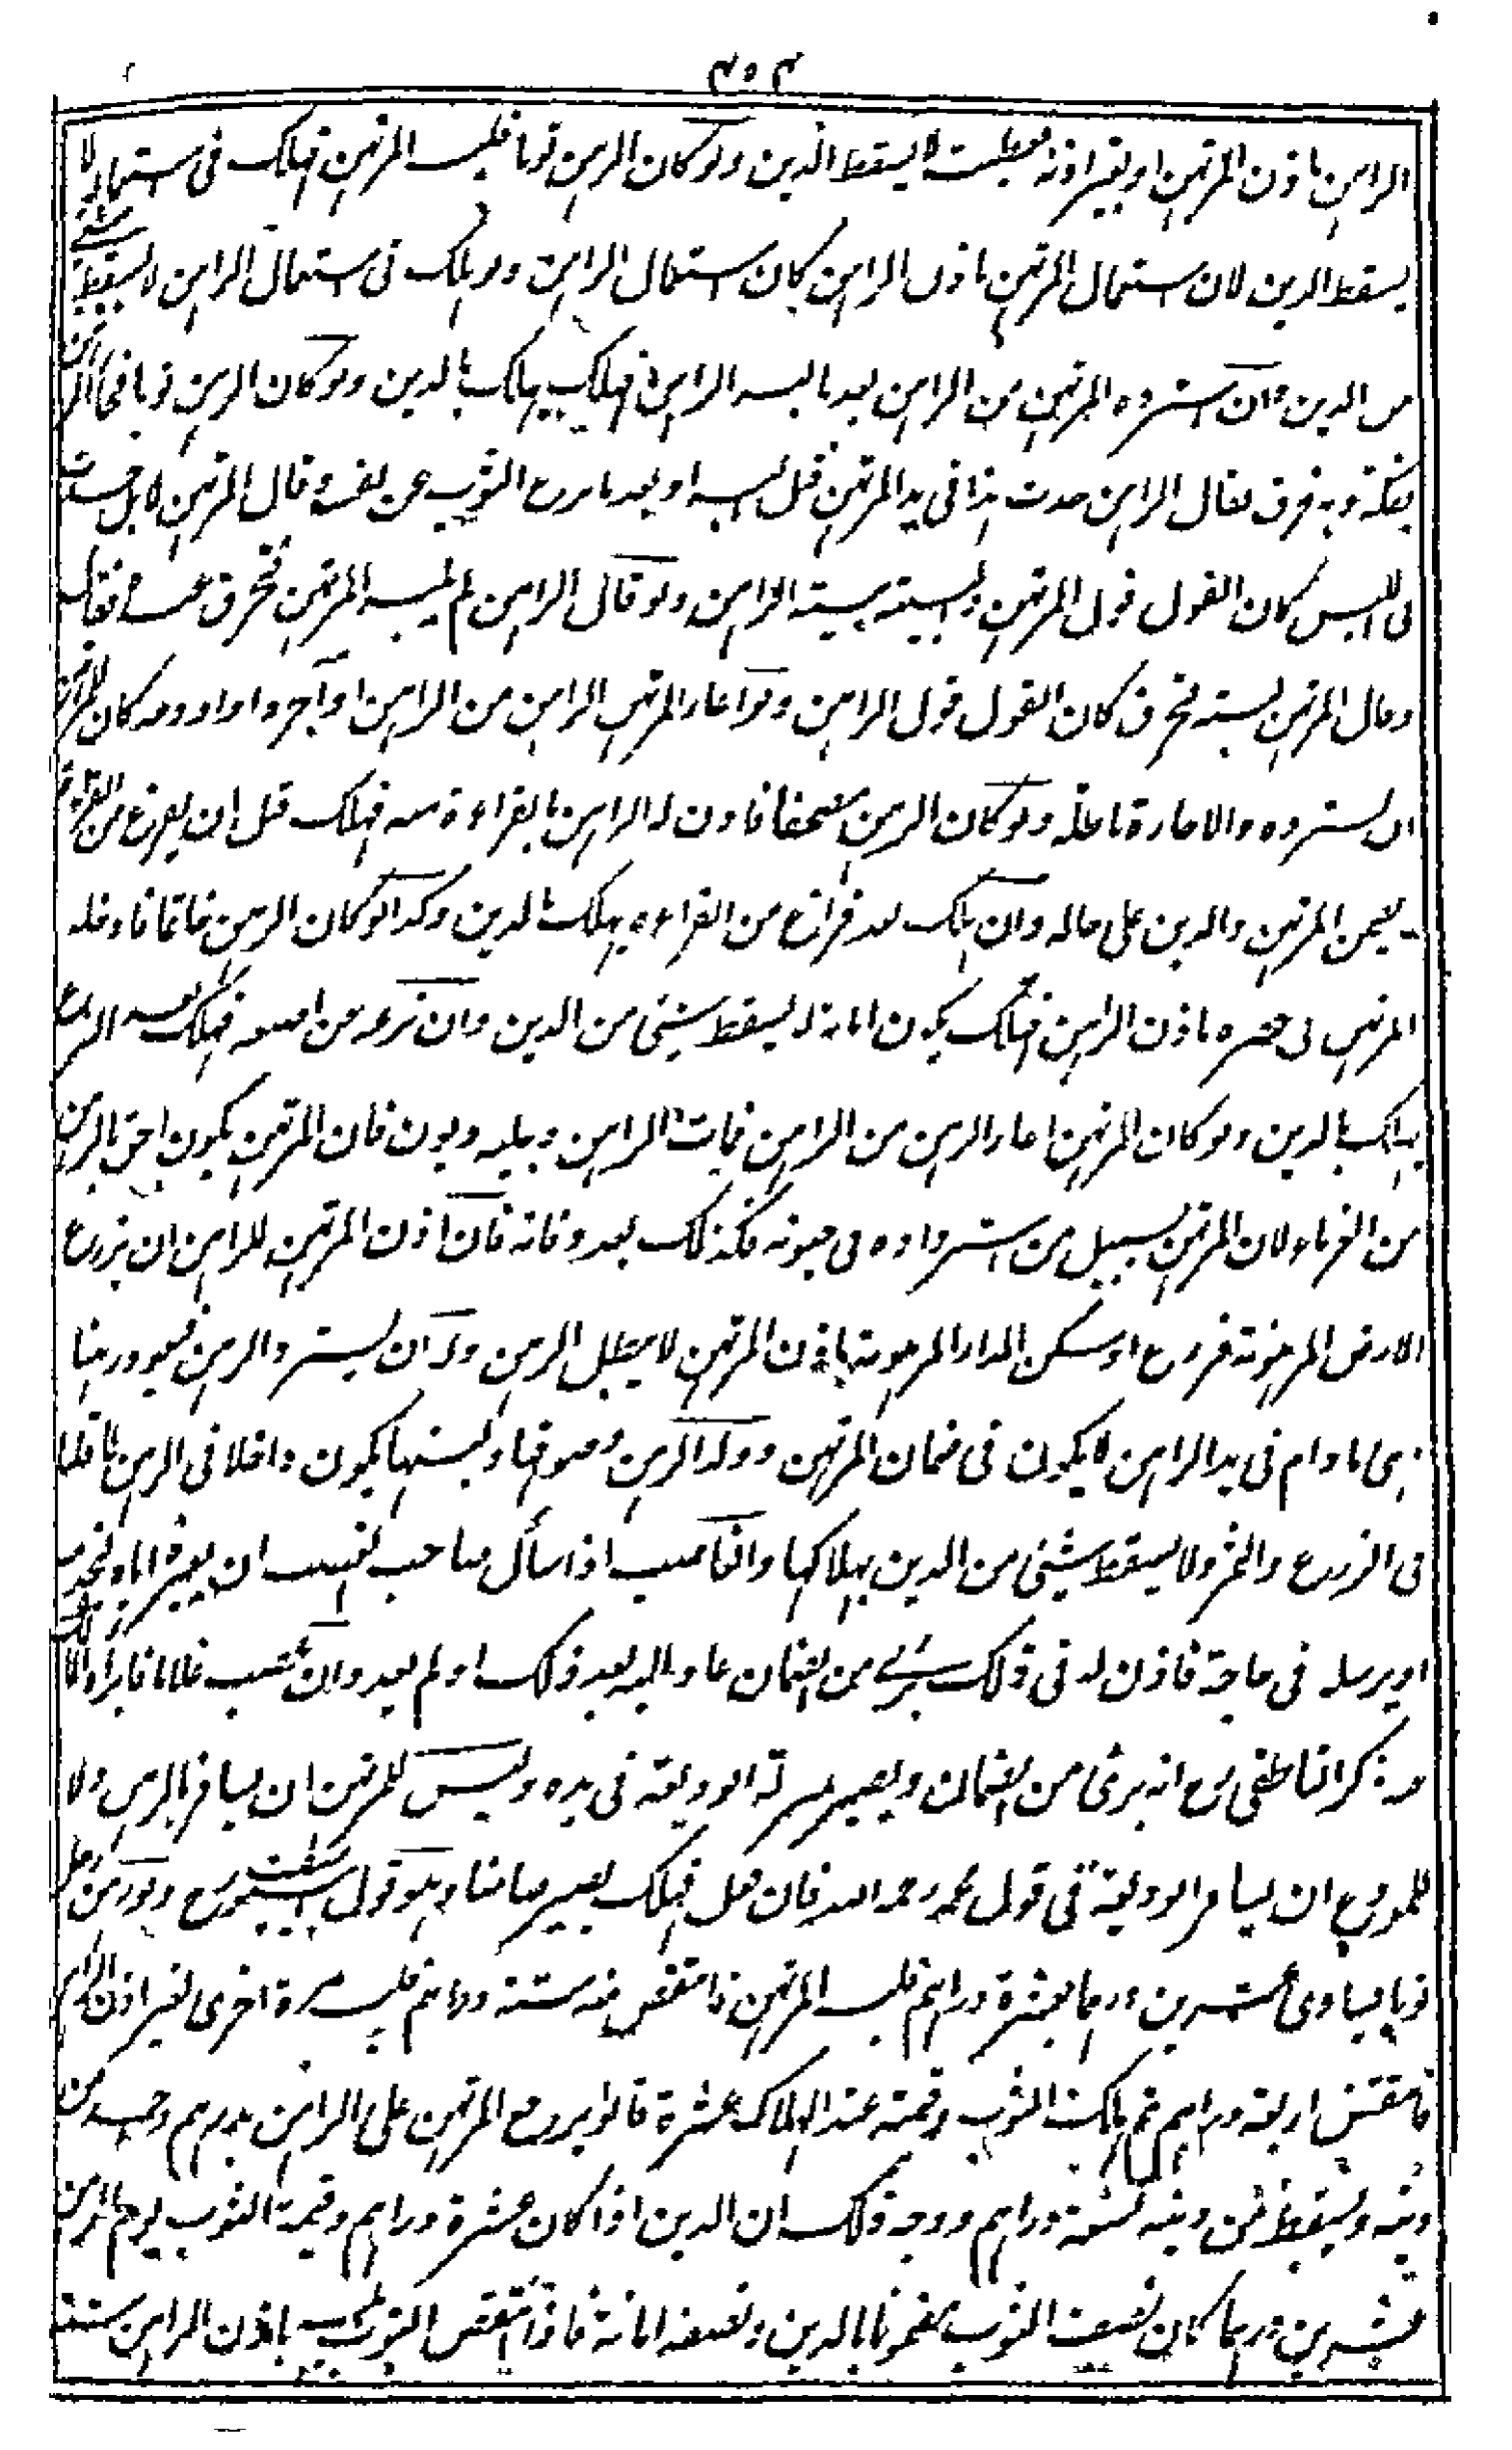 ٣٥٣
الراهن باذن المرتهن او بغير اذنه فعطبت لا يسقط الدين ولو كان الرهن ثوبا فلبسه المرتهن فهلك فى استعماله لا
يسقط الدين لان استعمال المرتهن باذن الراهن كان استعمال الراهن ولو هلك فى استعمال الراهن لا يسقط شئ
من الدين وان استرده المرتهن من الراهن بعد ما لبسه الراهن فهلك يهلك بالدين ولو كان الرهن ثوبا فجاء الراهن
يفتكه وبه خرق فقال الراهن حدث هذا فى يد المرتهن قبل لبسه او بعد ما نزع الثوب عن نفسه وقال المرتهن لا بل حدث
فى اللبس كان القول قول المرتهن والبينة بينة الراهن ولو قال الراهن لم يلبسه المرتهن تخرق
وقال المرتهن لبسته فتخرق كان القول قول الراهن ولو اعار المرتهن الرهن من الراهن او آجره او اودعه كان للمرتهن
ان يسترده والاجارة باطلة ولو كان الرهن مصحفا فاذن له الراهن بالقراءة منه فهلك قبل ان يفرغ من القراءة لا
يضمن المرتهن والدين على حاله وان هلك بعد فراغ من القراءة يهلك بالدين وكذا لو كان الرهن خاتما فادخله
المرتهن فى خنصره باذن الراهن فهلك يكون امانة لا يسقط شئ من الدين وان نزعه من اصبعه فهلك بعد النزع
يهلك بالدين ولو كان المرتهن اعار الرهن من الراهن فمات الراهن وعليه ديون فان المرتهن يكون احق بالرهن
من الغرماء لان المرتهن بسبيل من استرداده فى حيوته فكذلك بعد وفاته فان اذن المرتهن للراهن ان يزرع
الارض المرهونة فزرع او سكن الدار المرهونة باذن المرتهن لا يبطل الرهن وله ان يسترد الرهن فيعود رهنا
فهى ما دام فى يد الراهن لا يكون فى ضمان المرتهن وولد الرهن وصوفها ولبنها يكون داخلا فى الرهن كما قلنا
فى الزرع والثمر ولا يسقط شئ من الدين بهلاكها والغاصب اذا سأل صاحب الغصب ان يعيره اياه
او يرسله فى حاجة فاذن له فى ذلك برئ من الضمان عاد اليه بعد ذلك او لم يعد وان غصب غلاما فابرأه المالك
منه ذكر الناطفى رح انه برئ من الضمان ويصير بمنزلة الوديعة فى يده وليس للمرتهن ان يسافر بالرهن ولا
للمودع ان يسافر الوديعة فى قول محمد رحمه الله فان فعل فهلك يصير ضامنا وهو قول رح ولو رهن رجل
ثوبا يساوى عشرين درهما بعشرة دراهم فلبسه المرتهن فانتقص منه ستة دراهم ثم لبسه مرة اخرى بغير اذن الراهن
فانتقص اربعة دراهم ثم هلك الثوب وقيمته عند الهلاك عشرة قالوا يرجع المرتهن على الراهن بدرهم واحد من
دينه ويسقط من دينه تسعة دراهم ووجه ذلك ان الدين اذا كان عشرة دراهم وقيمة الثوب يوم الرهن
عشرين درهما كان نصف الثوب مضمونا بالدين ونصفه امانة فاذا انتقص الثوب بلبسه باذن الراهن ستة